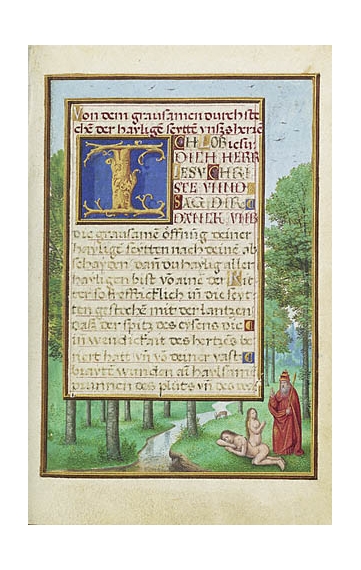 Von dem grausamen durchste
chē der hayligē seyttē vnsers herrē
ICH LOB
DICH HERR
IESV CHRI
STE VNND
SAG DIR
DANCK VMB
die grausame öffnūg deiner
haylige seytten nach deinē ab
schayden dañ du haylig aller
hayligen bist vō ainē der Rit
ter so heffticklich in die seyt
ten gestochē mit der lantzen
das der spitz des eysens die
inwendickait des hertzēs be
riert hatt vñ vō deiner vast
wundē ain haylsam
prunnen des plůts vñ des